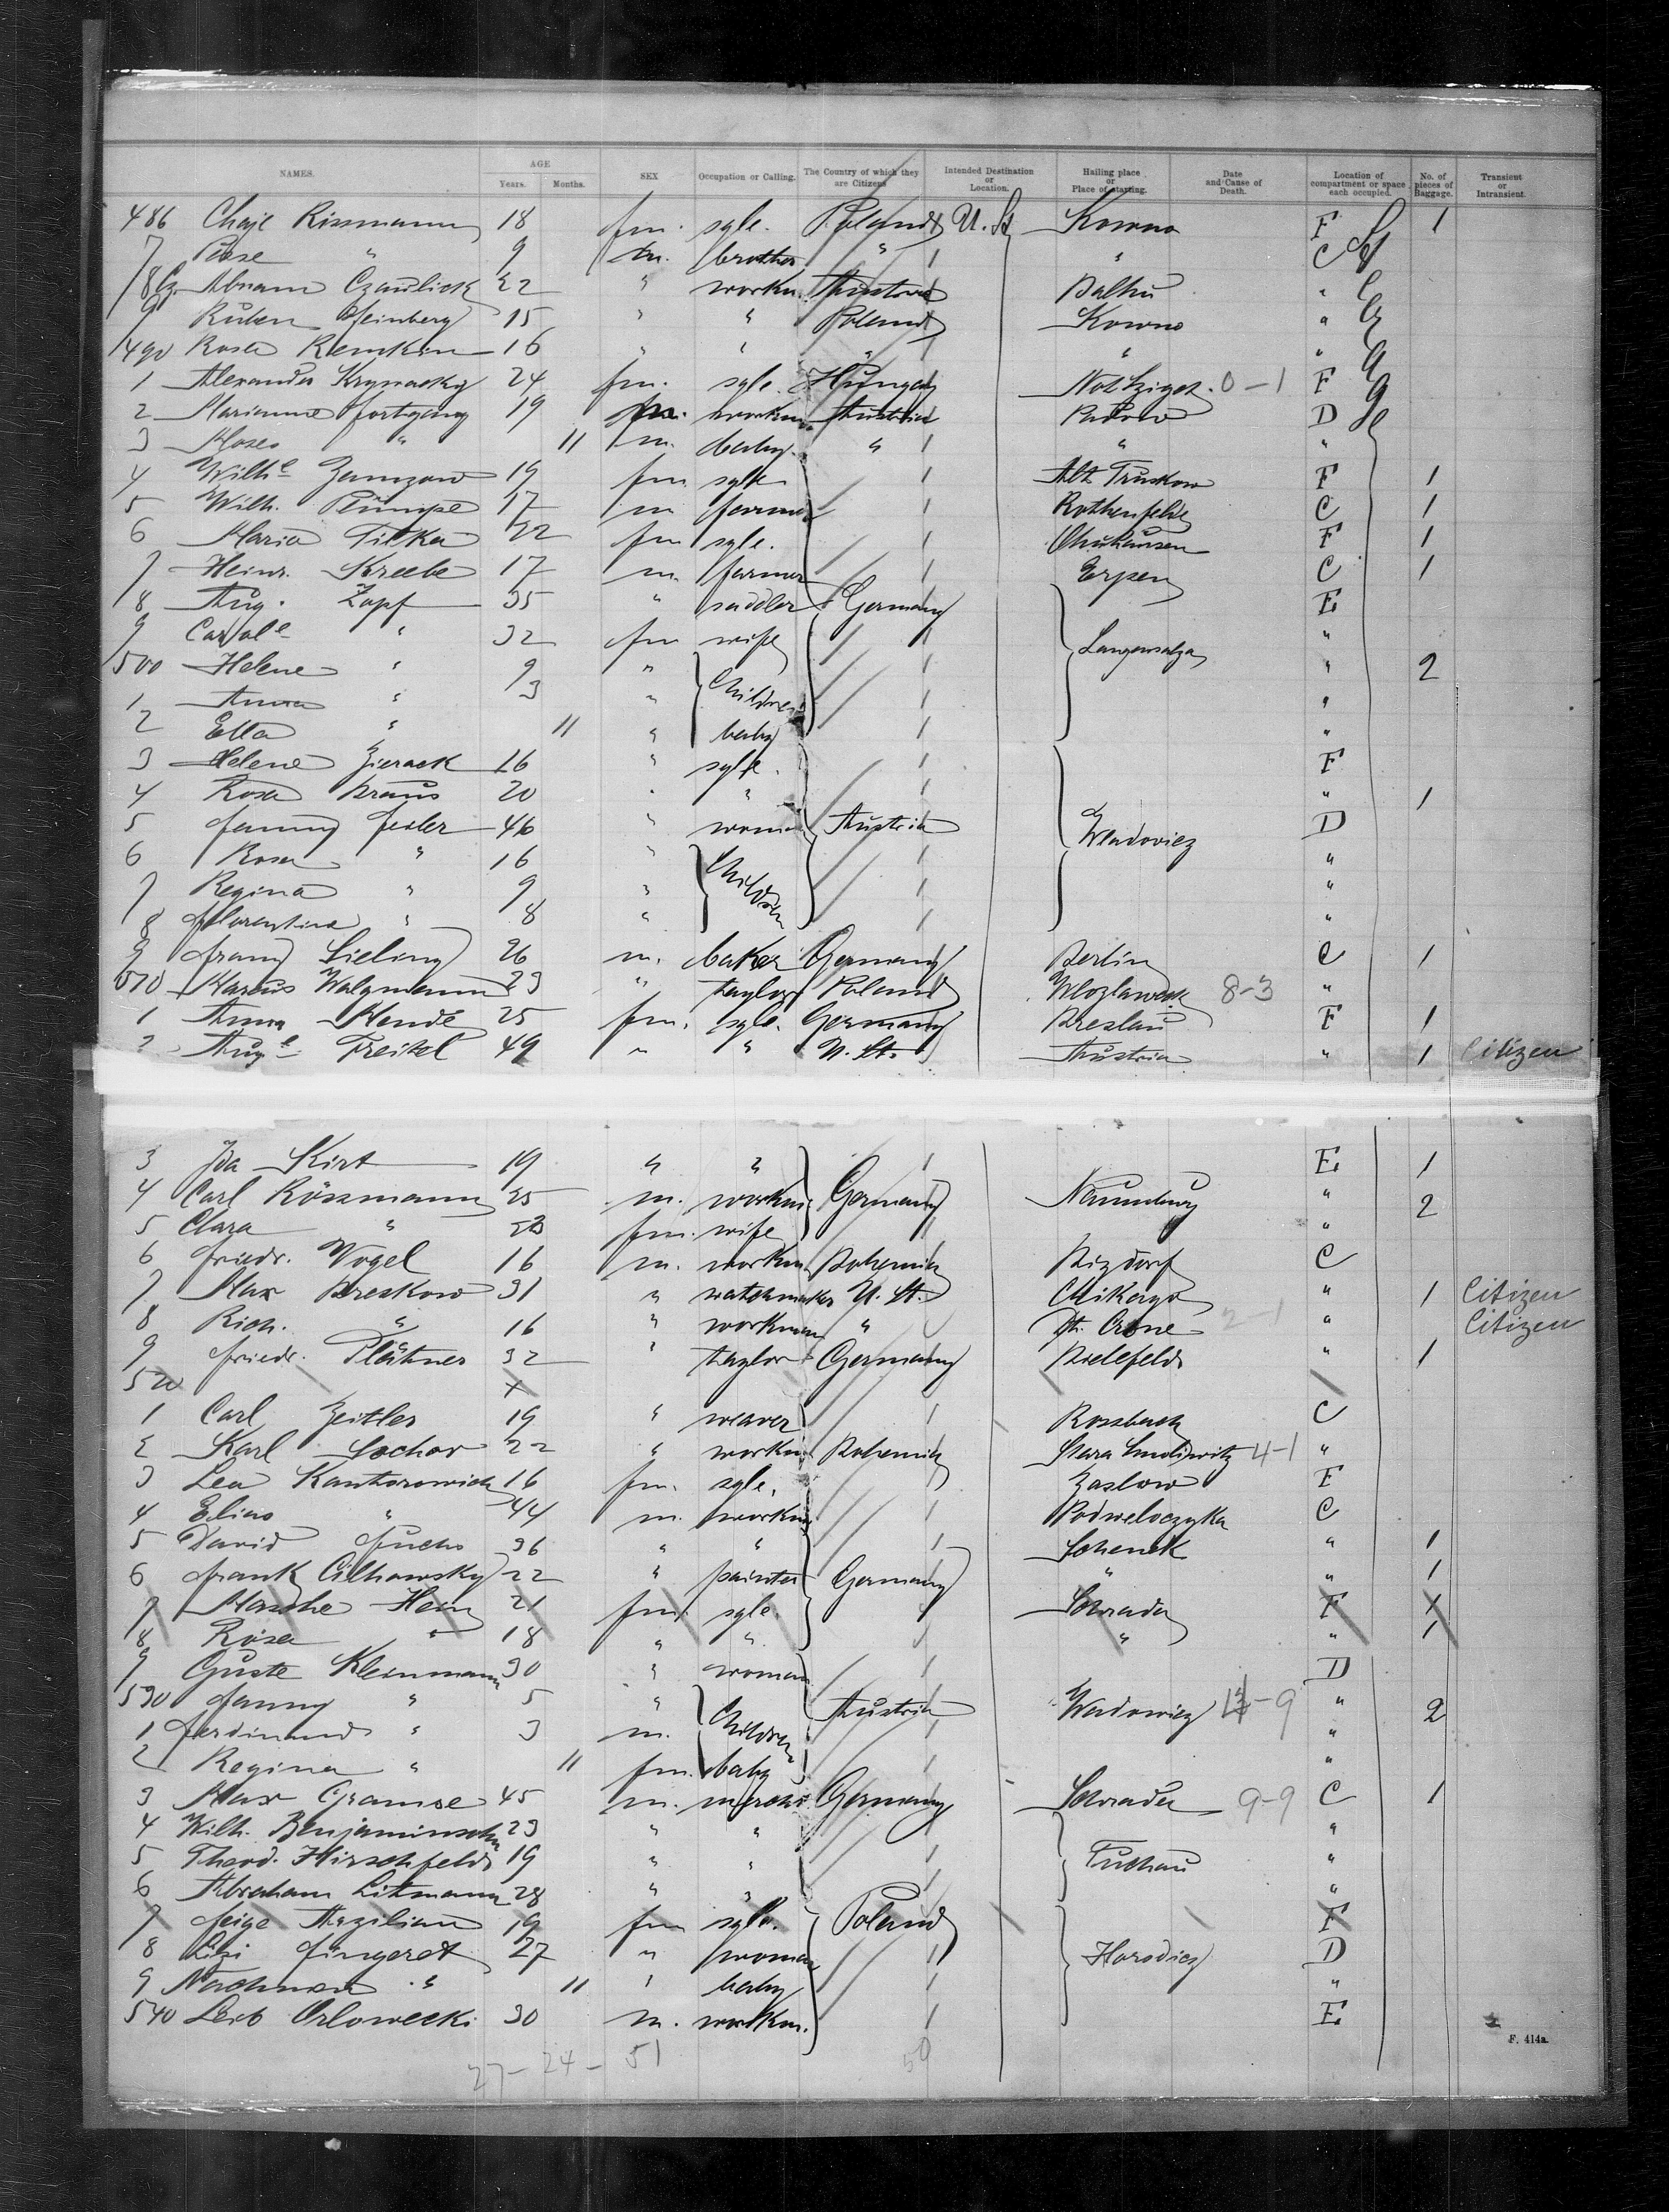 NAMES. AGE Years. Months. SEX Occupation or Calling. The Country of which they are Citizens Intended Destination or Location. Hailing place or Place of starting. Date and Cause of Death. Location of compartment or space each occupied. No. of pieces of Baggage. Transient or Intransient.
486 Chaje Rissmann 18 fm. sgle. Poland U. St Kowno F 1
7 " 9 m. brother " " C
8 Abram 22 " workm. Austria "
9 Ruben Steinberg 15 " " Poland Kowno "
490 Rosa Remkin 16 " " " " "
1 Alexander 24 fm. sgle. Hungary 0-1 F
2 Marianne Fortgang 19 workm. Austria D
3 Moses " 11 m. baby. " " "
4 Wilhe Zamzow 19 fm sgle Alt. F 1
5 Wilh. 17 m farmer Rothenfelde C 1
6 Maria Titka 22 fm sgle. F 1
7 Heinr. Streebe 17 m. farmer Erpen C 1
8 Aug. Zapf 35 " saddler Germany E
9 " 32 fm wife Langensalza "
500 Helene " 9 " Children " 2
1 Anna " 3 " "
2 Ella " 11 " baby "
3 Helene Zierack 16 " sgle. F
4 Rosa Kraus 20 " " " 1
5 Fanny Feiler 46 " woman Austria Wadowicz D
6 Rosa " 16 " Children "
7 Regina " 9 " "
8 Florentina " 8 " "
9 Franz Lieling 26 m. baker Germany Berlin C 1
510 Marcus Walzmann 23 " taylor Poland Wlozlawek 8-3 "
1 Anna Mende 25 fm. sgle. Germany Breslau F 1
2 Auge Freitel 49 " " U. St. Austria " 1 Citizen
3 Ida Kirt 19 " " E 1
4 Carl Rössmann 25 m. workm Germany Naumburg " 2
5 Clara " fm. wife "
6 Friedr. Vogel 16 m. workm Bohemia Rizdorf C
7 Max Breskow 31 " watchmaker U. St. Chikago " 1 Citizen
8 Rich. " 16 " workman " Dt. Crone 2-1 " Citizen
9 Friedr. Plätner 32 " taylor Germany Bielefeld " 1
520
1 Carl Zeitler 19 " weaver Rossbach C
2 Karl Sochor 22 " workm Bohemia Stara 4-1 "
3 Lea Kantorowich 16 fm. sgle. Zaslow F
4 Elias " 44 m. workm Podweloczyka C
5 David Fuchs 36 " " Schenek " 1
6 Frank Cilhowsky 22 " painter Germany " " 1
7 Masche Hein 21 fm. sgle. Schrader F 1
8 Rosa " 18 " " " " 1
9 Guste Kleinmann 30 " woman D
530 Fanny " 5 " Children Austria Wadowicz -9 " 2
1 Ferdinand " 3 m. "
2 Regina " 11 fm. baby "
3 Max Gramse 45 m. merch. Germany Schrader 9-9 C 1
4 Wilh. Benjaminsohn 23 " " "
5 Theod. Hirschfeld 19 " " Tuchau "
6 Abraham Litmann 28 " " "
7 Feige 19 fm sgle. Poland F
8 Fingeret 27 " woman Horodicz D
9 Nachman " 11 " baby "
540 Leib Orlowecki 30 m. workm. E
27-24-51 50
F. 414a.